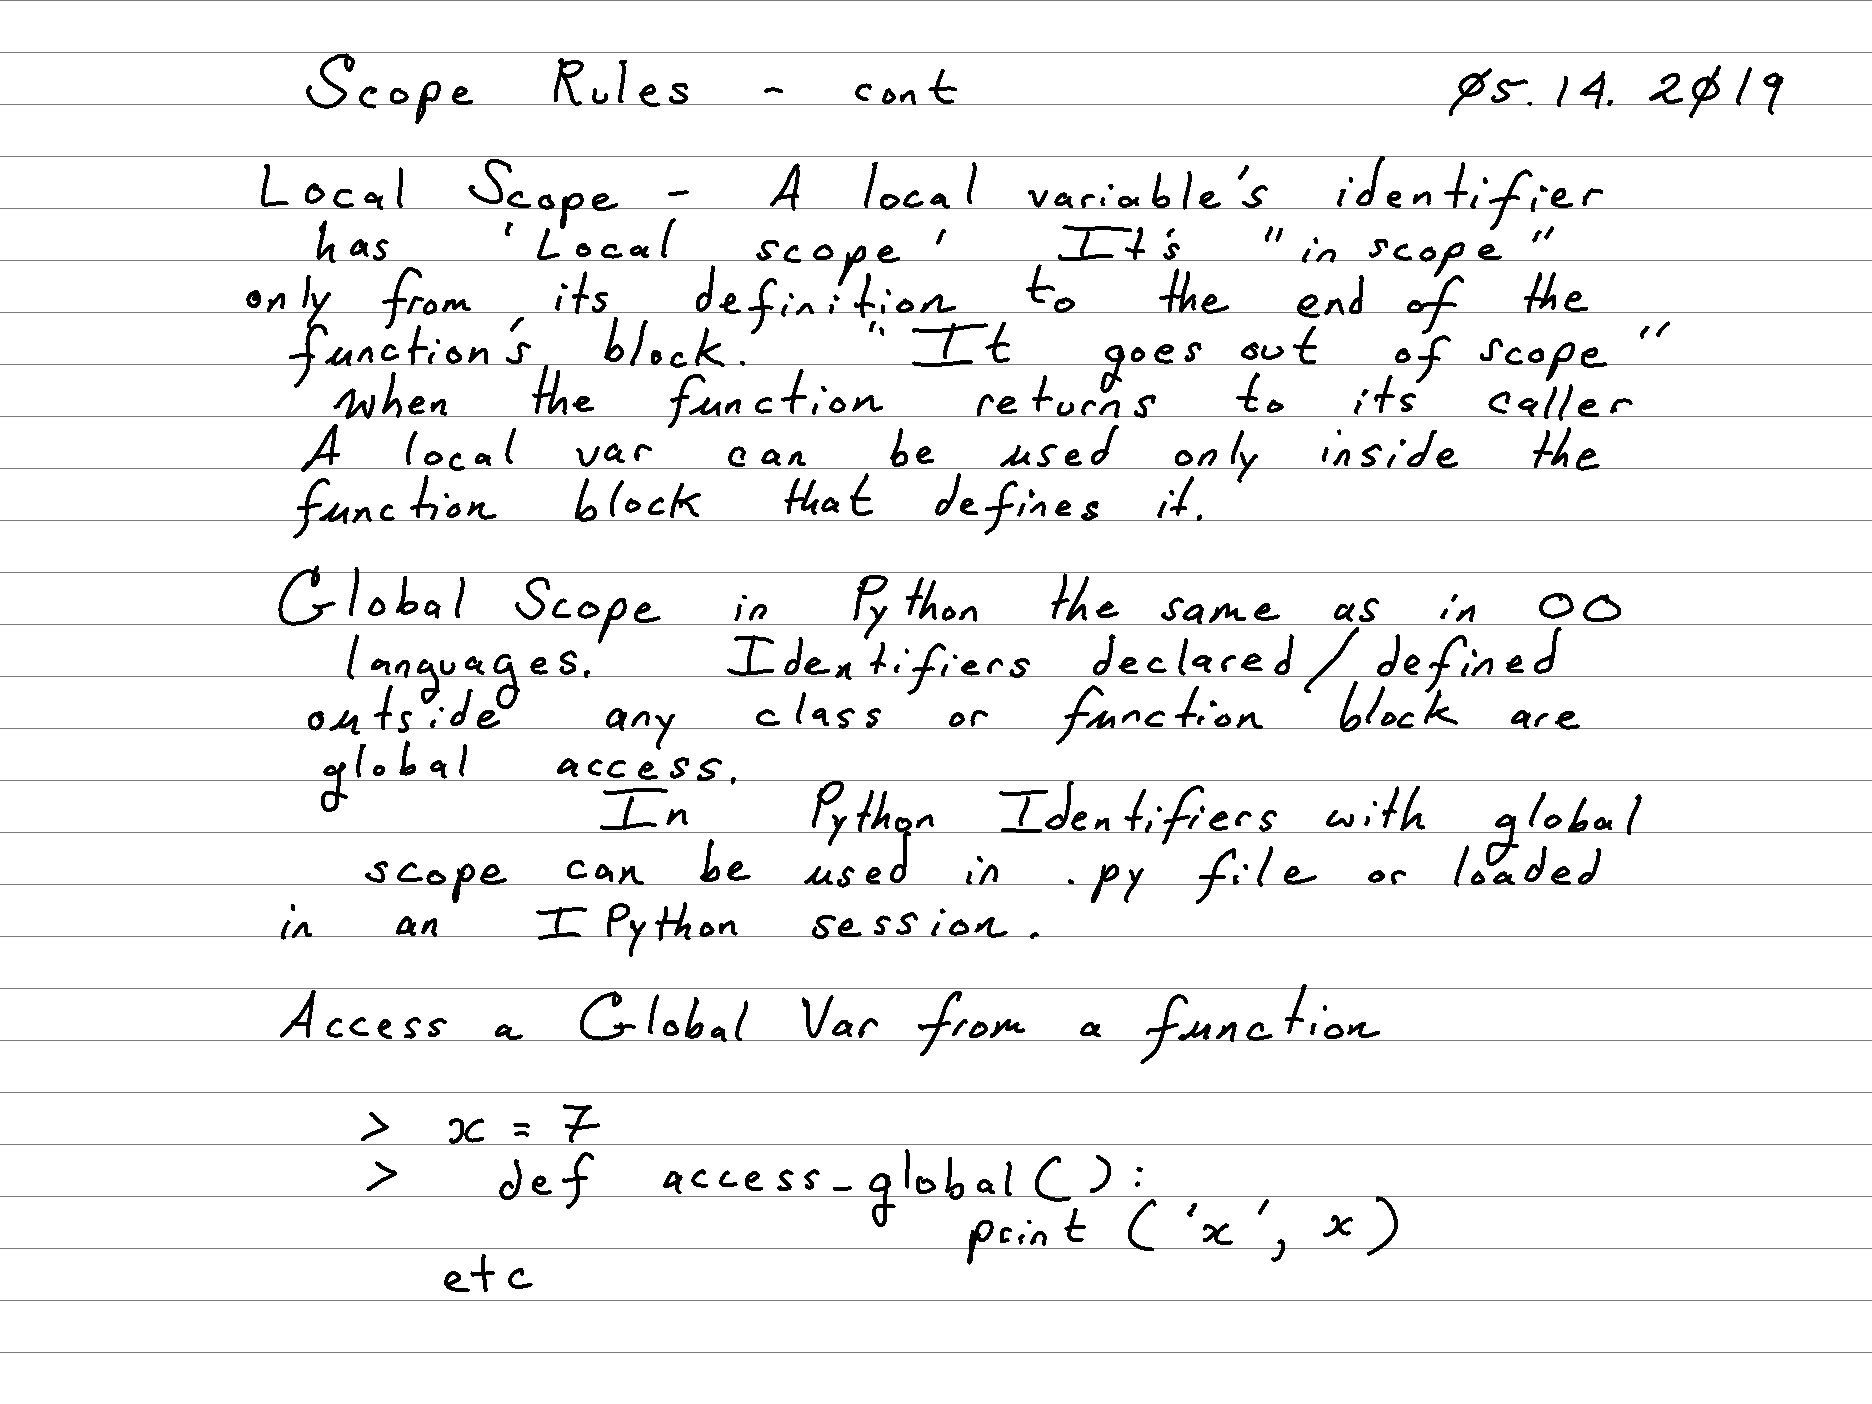 Scope Rules - cont 05.14.2019
Local Scope - A local variable's identifier
has 'Local scope' It's "in scope"
only from its definition to the end of the
function's block. "It goes out of scope"
when the function returns to its caller
A local var can be used only inside the
function block that defines it.
Global Scope in Python the same as in OO
languages. Identifiers declared/defined
outside any class or function block are
global access.
In Python Identifiers with global
scope can be used in .py file or loaded
in an IPython session.
Access a Global Var from a function
> x = 7
> def access_global():
print ('x', x)
etc